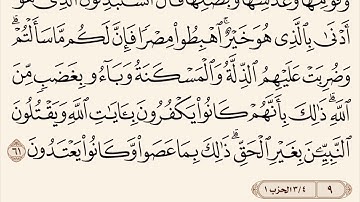 وَفُومِهَا وَعَدَسِهَا وَبَصَلِهَا قَالَ أَتَسْتَبْدِلُونَ الَّذِي هُوَ
أَدْنَىٰ بِالَّذِي هُوَ خَيْرٌ ۚ ٱهْبِطُوا۟ مِصْرًا فَإِنَّ لَكُم مَّا سَأَلْتُمْ ۗ
وَضُرِبَتْ عَلَيْهِمُ ٱلذِّلَّةُ وَٱلْمَسْكَنَةُ وَبَآءُو بِغَضَبٍ مِّنَ
ٱللَّهِ ۗ ذَٰلِكَ بِأَنَّهُمْ كَانُوا۟ يَكْفُرُونَ بِـَٔايَٰتِ ٱللَّهِ وَيَقْتُلُونَ
ٱلنَّبِيِّـۧنَ بِغَيْرِ ٱلْحَقِّ ۗ ذَٰلِكَ بِمَا عَصَوا۟ وَّكَانُوا۟ يَعْتَدُونَ ٦١
٩ ٣/٤ الحزب ١